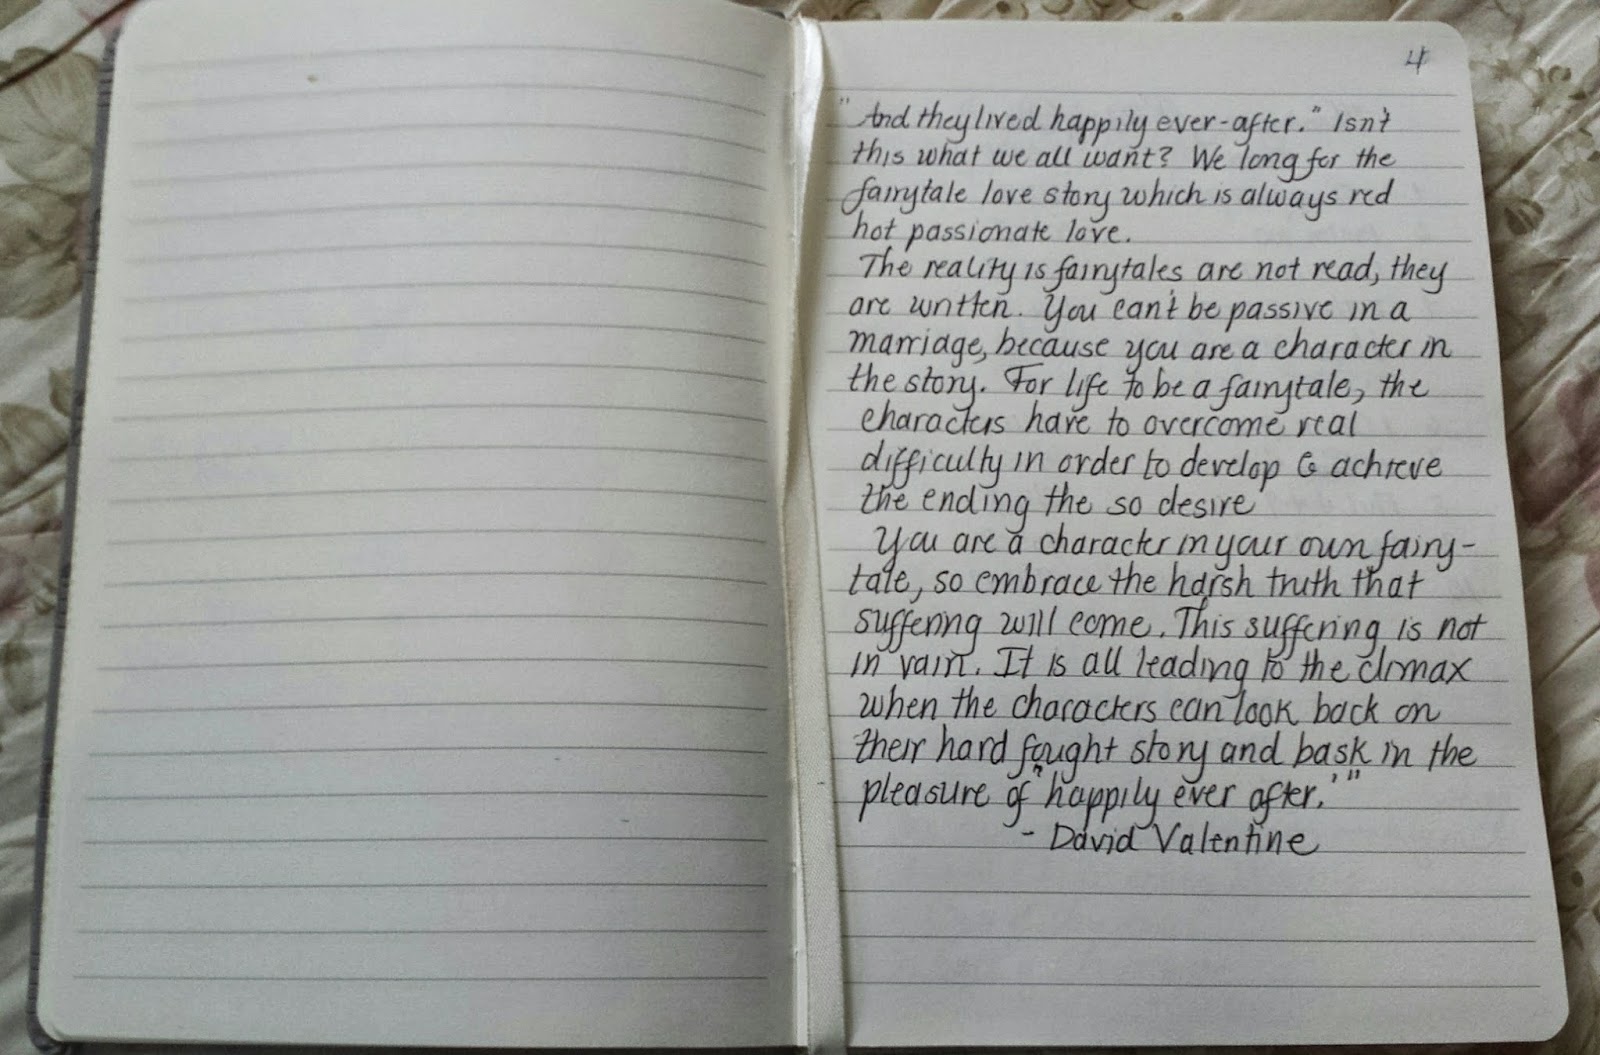 4
"And they lived happily ever-after." Isn't
this what we all want? We long for the
fairytale love story which is always red
hot passionate love.
The reality is fairytales are not read, they
are written. You can't be passive in a
marriage, because you are a character in
the story. For life to be a fairytale, the
characters have to overcome real
difficulty in order to develop & achieve
the ending the so desire
You are a character in your own fairy-
tale, so embrace the harsh truth that
suffering will come. This suffering is not
in vain. It is all leading to the climax
when the characters can look back on
their hard fought story and bask in the
pleasure of "happily ever after.'"
- David Valentine